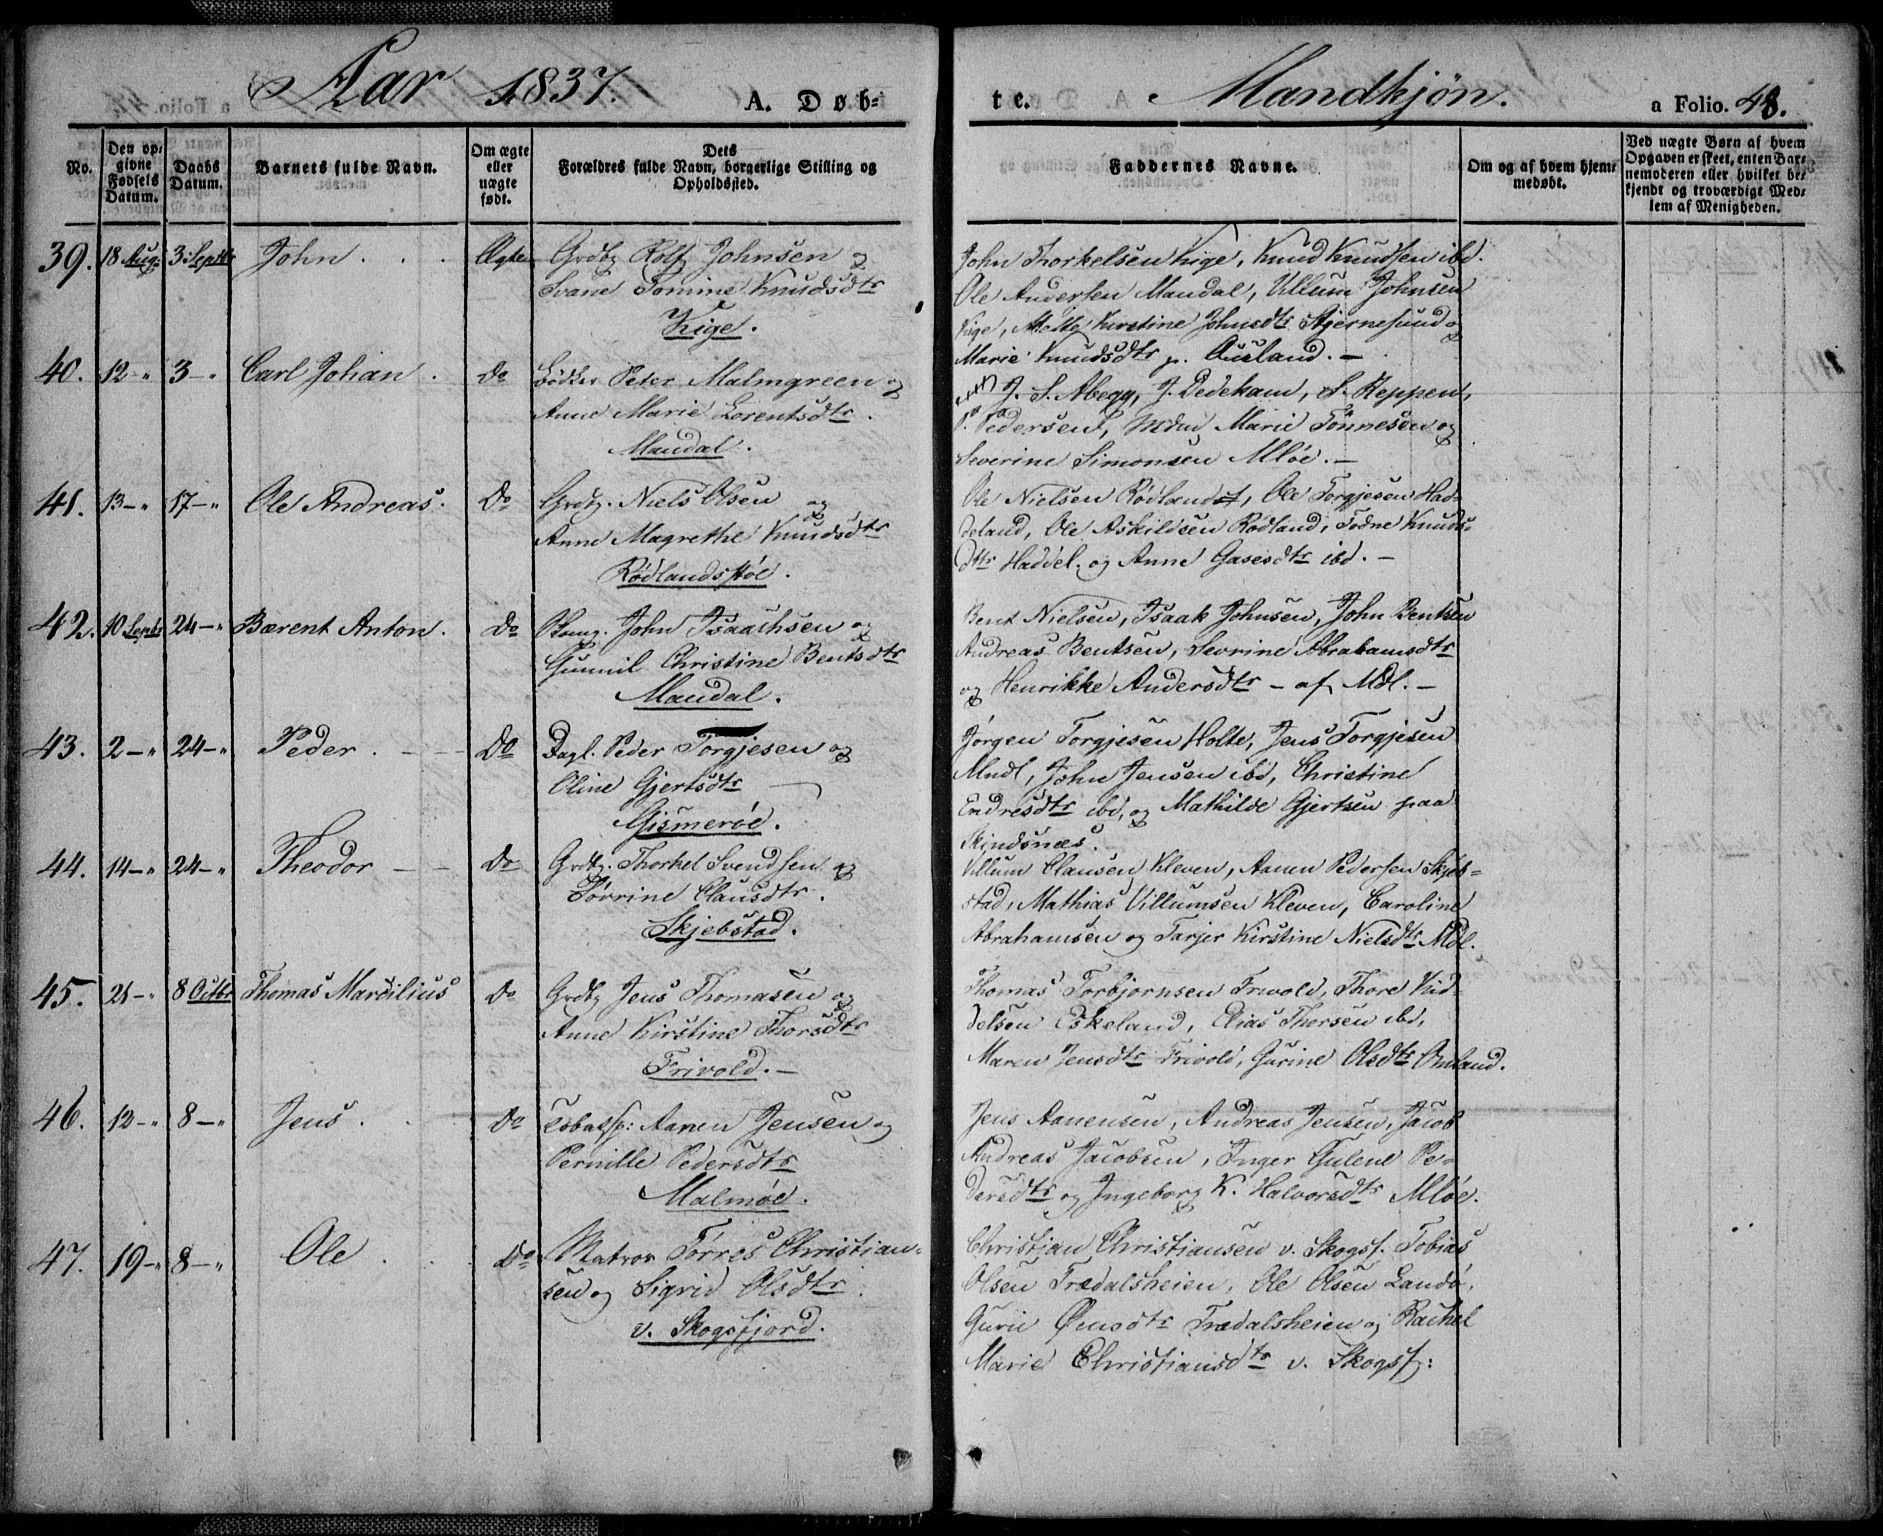 Aar 1837. A. Døb-
te. Mandkjøn. a Folio. 48.
No.
Den op-
givne
Fødsels
Datum.
Daabs
Datum.
Barnets fulde Navn.
Om ægte
eller
uægte
født.
Dets
Forældres fulde Navn, borgerlige Stilling og
Opholdssted.
Faddernes Navne.
Om og af hvem hjem-
medøbt.
Ved uægte Børn af hvem
Opgaven er skeet, enten Bar-
nemoderen eller hvilket be-
kjendt og troværdigt Med-
lem af Menigheden.
39. 18 Aug. 3 Septbr John Ægte Grdbr Rolf Johnsen og
Svane Tomine Knudsdtr
Kige.
John Thorkelsen Kige, Knud Knudsen ibd.
Ole Andersen Mandal, Villum Johnsen
Kige, Mette Kirstine Johnsdtr Stjernesund og
Marie Knudsdtr p. Aueland. —
40. 12 - " 3 - " Carl Johan. Do Bødker Peter Malmgreen og
Anne Marie Lorentsdtr.
Mandal.
J. S. Abegg, J. Dedekam, S. Reppen,
P. Pedersen, Mdm Marie Tönnesen og
Severine Simonsen Mløe. —
41. 13 - " 17 - " Ole Andreas. Do Grdbr. Niels Olsen og
Anne Magrethe Knudsdtr
Rödlandsstöe.
Ole Nielsen Rödland, Ole Torgjesen Had-
deland, Ole Askildsen Rödland, Todne Knuds-
dtr Haddel. og Anne Gasesdtr ibd. —
42. 10 Septbr 24 - " Bærent Anton. Do John Isaachsen og
Gunnil Christine Bentsdtr
Mandal.
Bent Nielsen, Isaak Johnsen, John Bentsen
Andreas Bentsen, Sevrine Abrahamsdtr
og Henrikke Andersdtr - af Mdl. —
43. 2 - " 24 - " Peder. Do Dagl. Peder Torgjesen og
Oline Gjertsdtr
Gismeröe.
Jörgen Torgjesen Holte, Jens Torgjesen
Mndl, John Jensen ibd, Christine
Endresdtr ibd, og Mathilde Gjertsen paa
Skindsnæs.
44. 14 - " 24 - " Theodor Do Grdbr. Thorkel Svendsen og
Sövrine Clausdtr.
Skjebstad.
Villum Clausen Kleven, Aanen Pedersen Skjeb-
stad, Mathias Villumsen Kleven, Caroline
Abrahamsen og Tarjer Kirstine Nielsdtr Mdl.
45. 21 - " 8 Octbr Thomas Marcilius Do Grdbr Jens Thomasen og
Anne Kirstine Thorsdtr
Frivold. —
Thomas Torbjørnsen Frivold, Thore Vid-
delsen Eskeland, Elias Thorsen ibd,
Maren Jensdtr Frivold, Gurine Olsdtr Omland.
46. 12 - " 8 - " Jens. Do Aanen Jensen og
Pernille Pedersdtr
Malmöe.
Jens Aanensen, Andreas Jensen, Jacob
Andreas Jacobsen, Inger Gulene Pe-
dersdtr og Ingeborg K. Halvorsdtr Mlöe.
47. 19 - " 8 - " Ole Do Matros Törres Christian-
sen og Sigrid Olsdtr.
v. Skogsfjord.
Christjan Christiansen v. Skogsf. Tobias
Olsen Trædalsheien, Ole Olsen Landö,
Gurie Ömsdtr Trædalsheien og Rachel
Marie Christiansdtr v. Skogsfj: